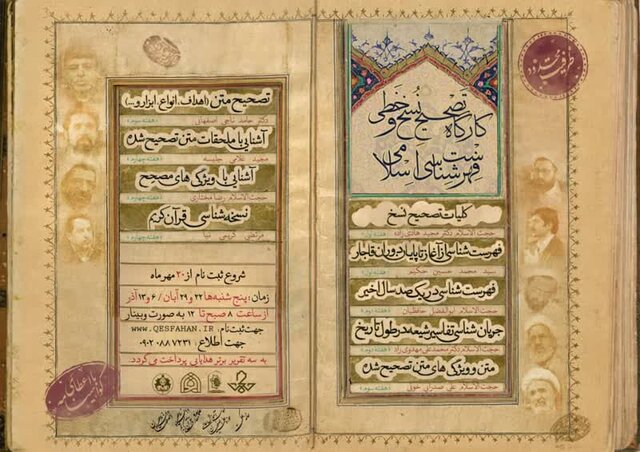 ظرفیت محدود
کارگاه تصحیح نسخ خطی و
فهرست شناسی اسلامی
کلیات تصحیح نسخ
حجت الاسلام دکتر مجید هادی زاده (هفته اول)
فهرست شناسی از آغاز تا پایان دوران قاجار
سید محمد حسین حکیم (هفته اول)
فهرست شناسی در یک صد سال اخیر
حجت الاسلام ابوالفضل حافظیان (هفته دوم)
جریان شناسی تفاسیر شیعه در طول تاریخ
حجت الاسلام دکتر محمد علی مهدوی راد (هفته دوم)
متن و ویژگی های متن تصحیح شده
حجت الاسلام علی صدرایی خوئی (هفته سوم)
تصحیح متن (اهداف، انواع، ابزار و...)
دکتر حامد ناجی اصفهانی (هفته سوم)
آشنایی با ملحقات متن تصحیح شده
مجید غلامی جلیسه (هفته چهارم)
آشنایی با ویژگی های مصحح
حجت الاسلام رضا مختاری (هفته چهارم)
نسخه شناسی قرآن کریم
مرتضی کریمی نیا (هفته چهارم)
شروع ثبت نام از ۲۰ مهرماه
زمان: پنج شنبه ها ۲۲ و ۲۹ آبان / ۶ و ۱۳ آذر
از ساعت ۸ صبح تا ۱۲ به صورت وبینار
جهت ثبت نام: WWW.QESFAHAN.IR
جهت اطلاع: ۰۹۰۲۰۸۸۷۲۳۱
به سه تقریر برتر هدایایی پرداخت می گردد.
با اعطای
گواهینامه